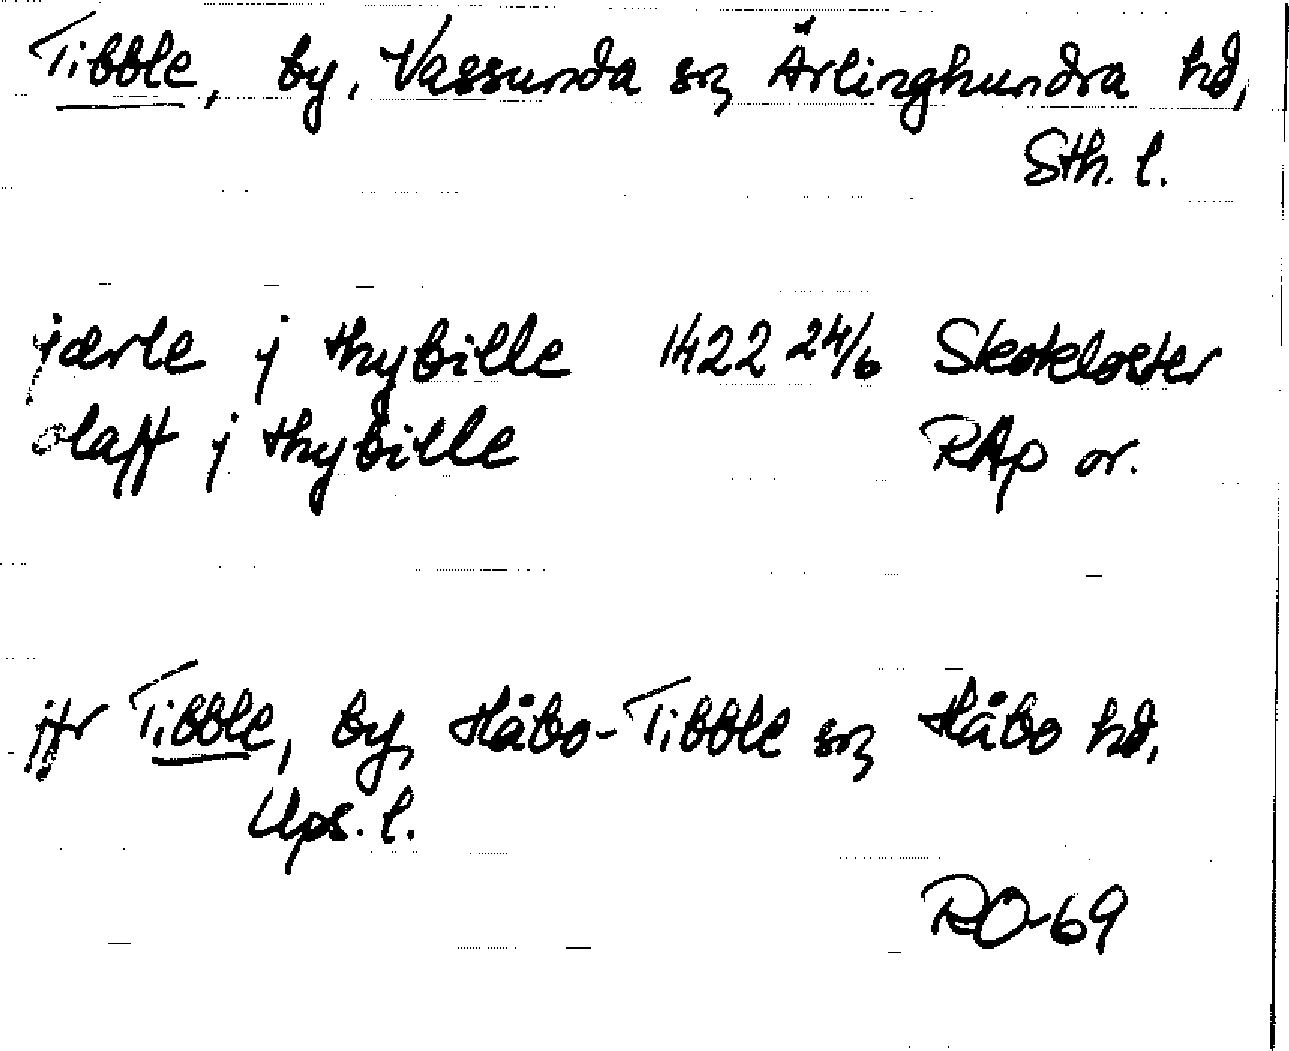 Tibble, by, Vassunda sn, Ärlinghundra hd,
Sth. l.
jærle j thybille 1422 24/6 Skokloster
olaff j thybille RAp or.
jfr Tibble, by, Håbo-Tibble sn, Håbo hd,
Ups. l.
RO-69